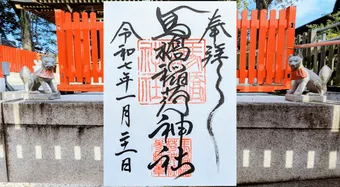 奉拝
馬橋稲荷神社
令和七年一月 日